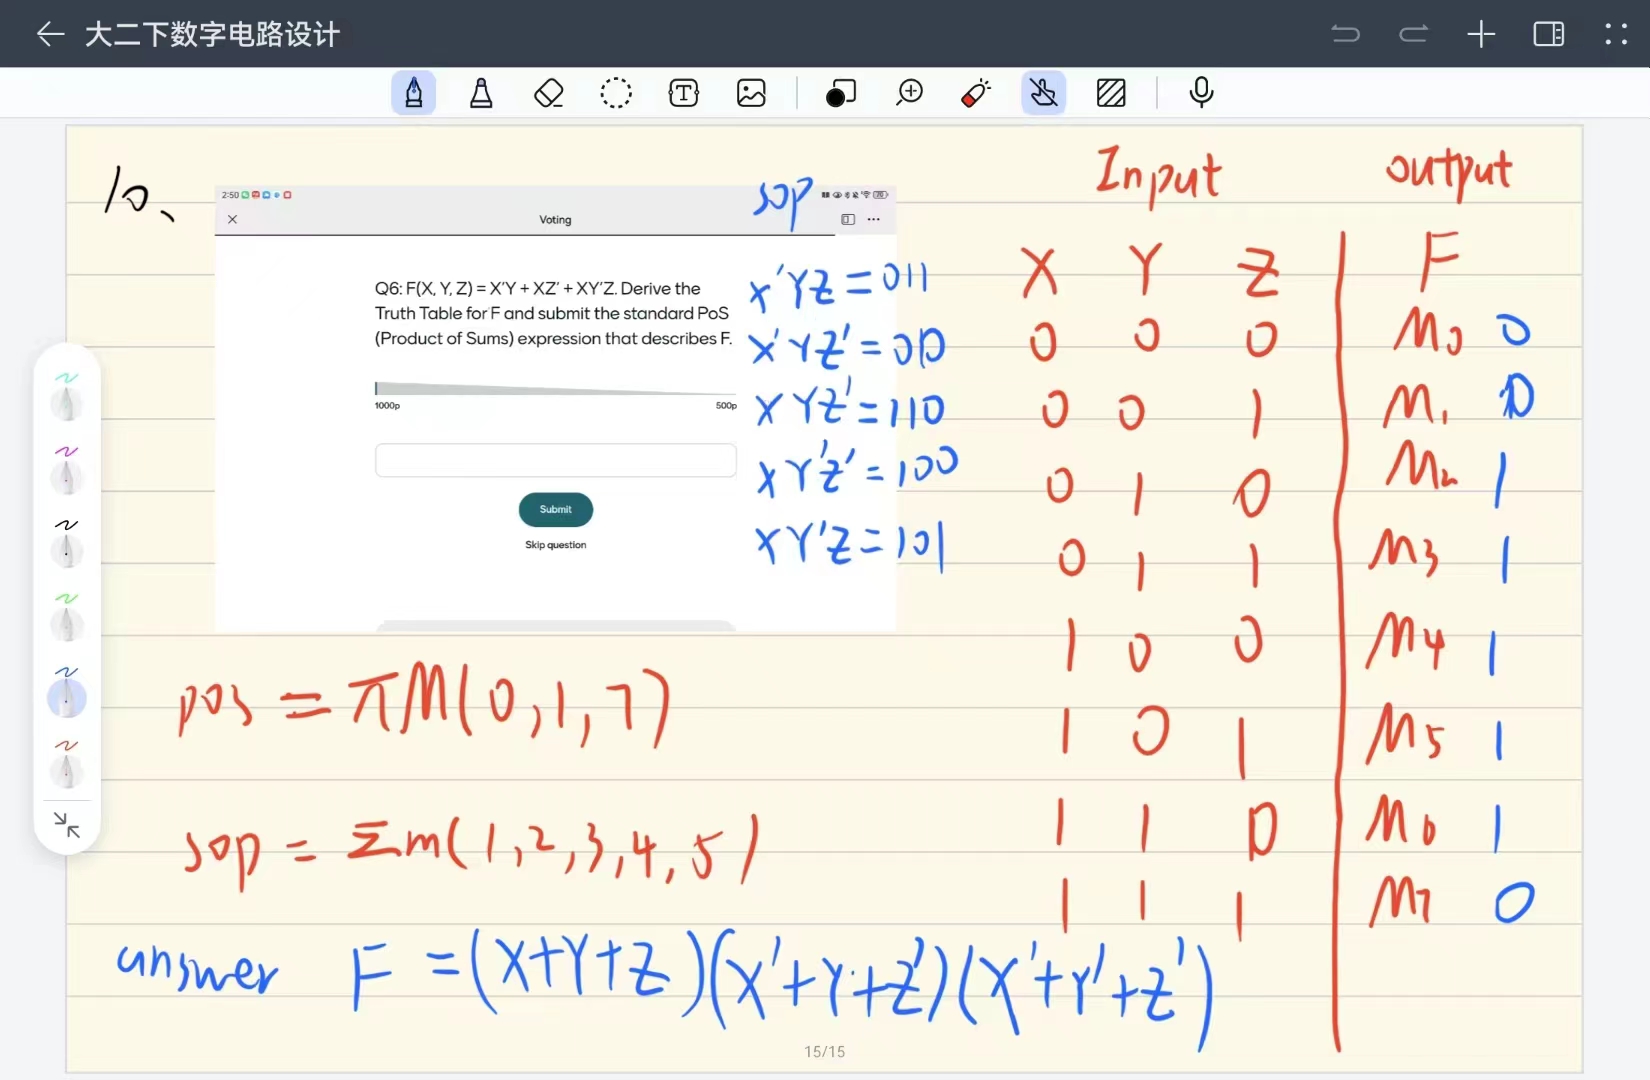 大二下数字电路设计
10、
2:50
Voting
Q6: F(X, Y, Z) = X'Y + XZ' + XY'Z. Derive the
Truth Table for F and submit the standard PoS
(Product of Sums) expression that describes F.
1000p 500p
Submit
Skip question
sop
X'YZ = 011
X'YZ' = 010
XYZ' = 110
XY'Z' = 100
XY'Z = 101
Input output
X Y Z F
0 0 0 M0 0
0 0 1 M1 0
0 1 0 M2 1
0 1 1 M3 1
1 0 0 M4 1
1 0 1 M5 1
1 1 0 M6 1
1 1 1 M7 0
pos = πM(0,1,7)
sop = Σm(1,2,3,4,5)
answer F = (X+Y+Z)(X'+Y+Z')(X'+Y'+Z')
15/15